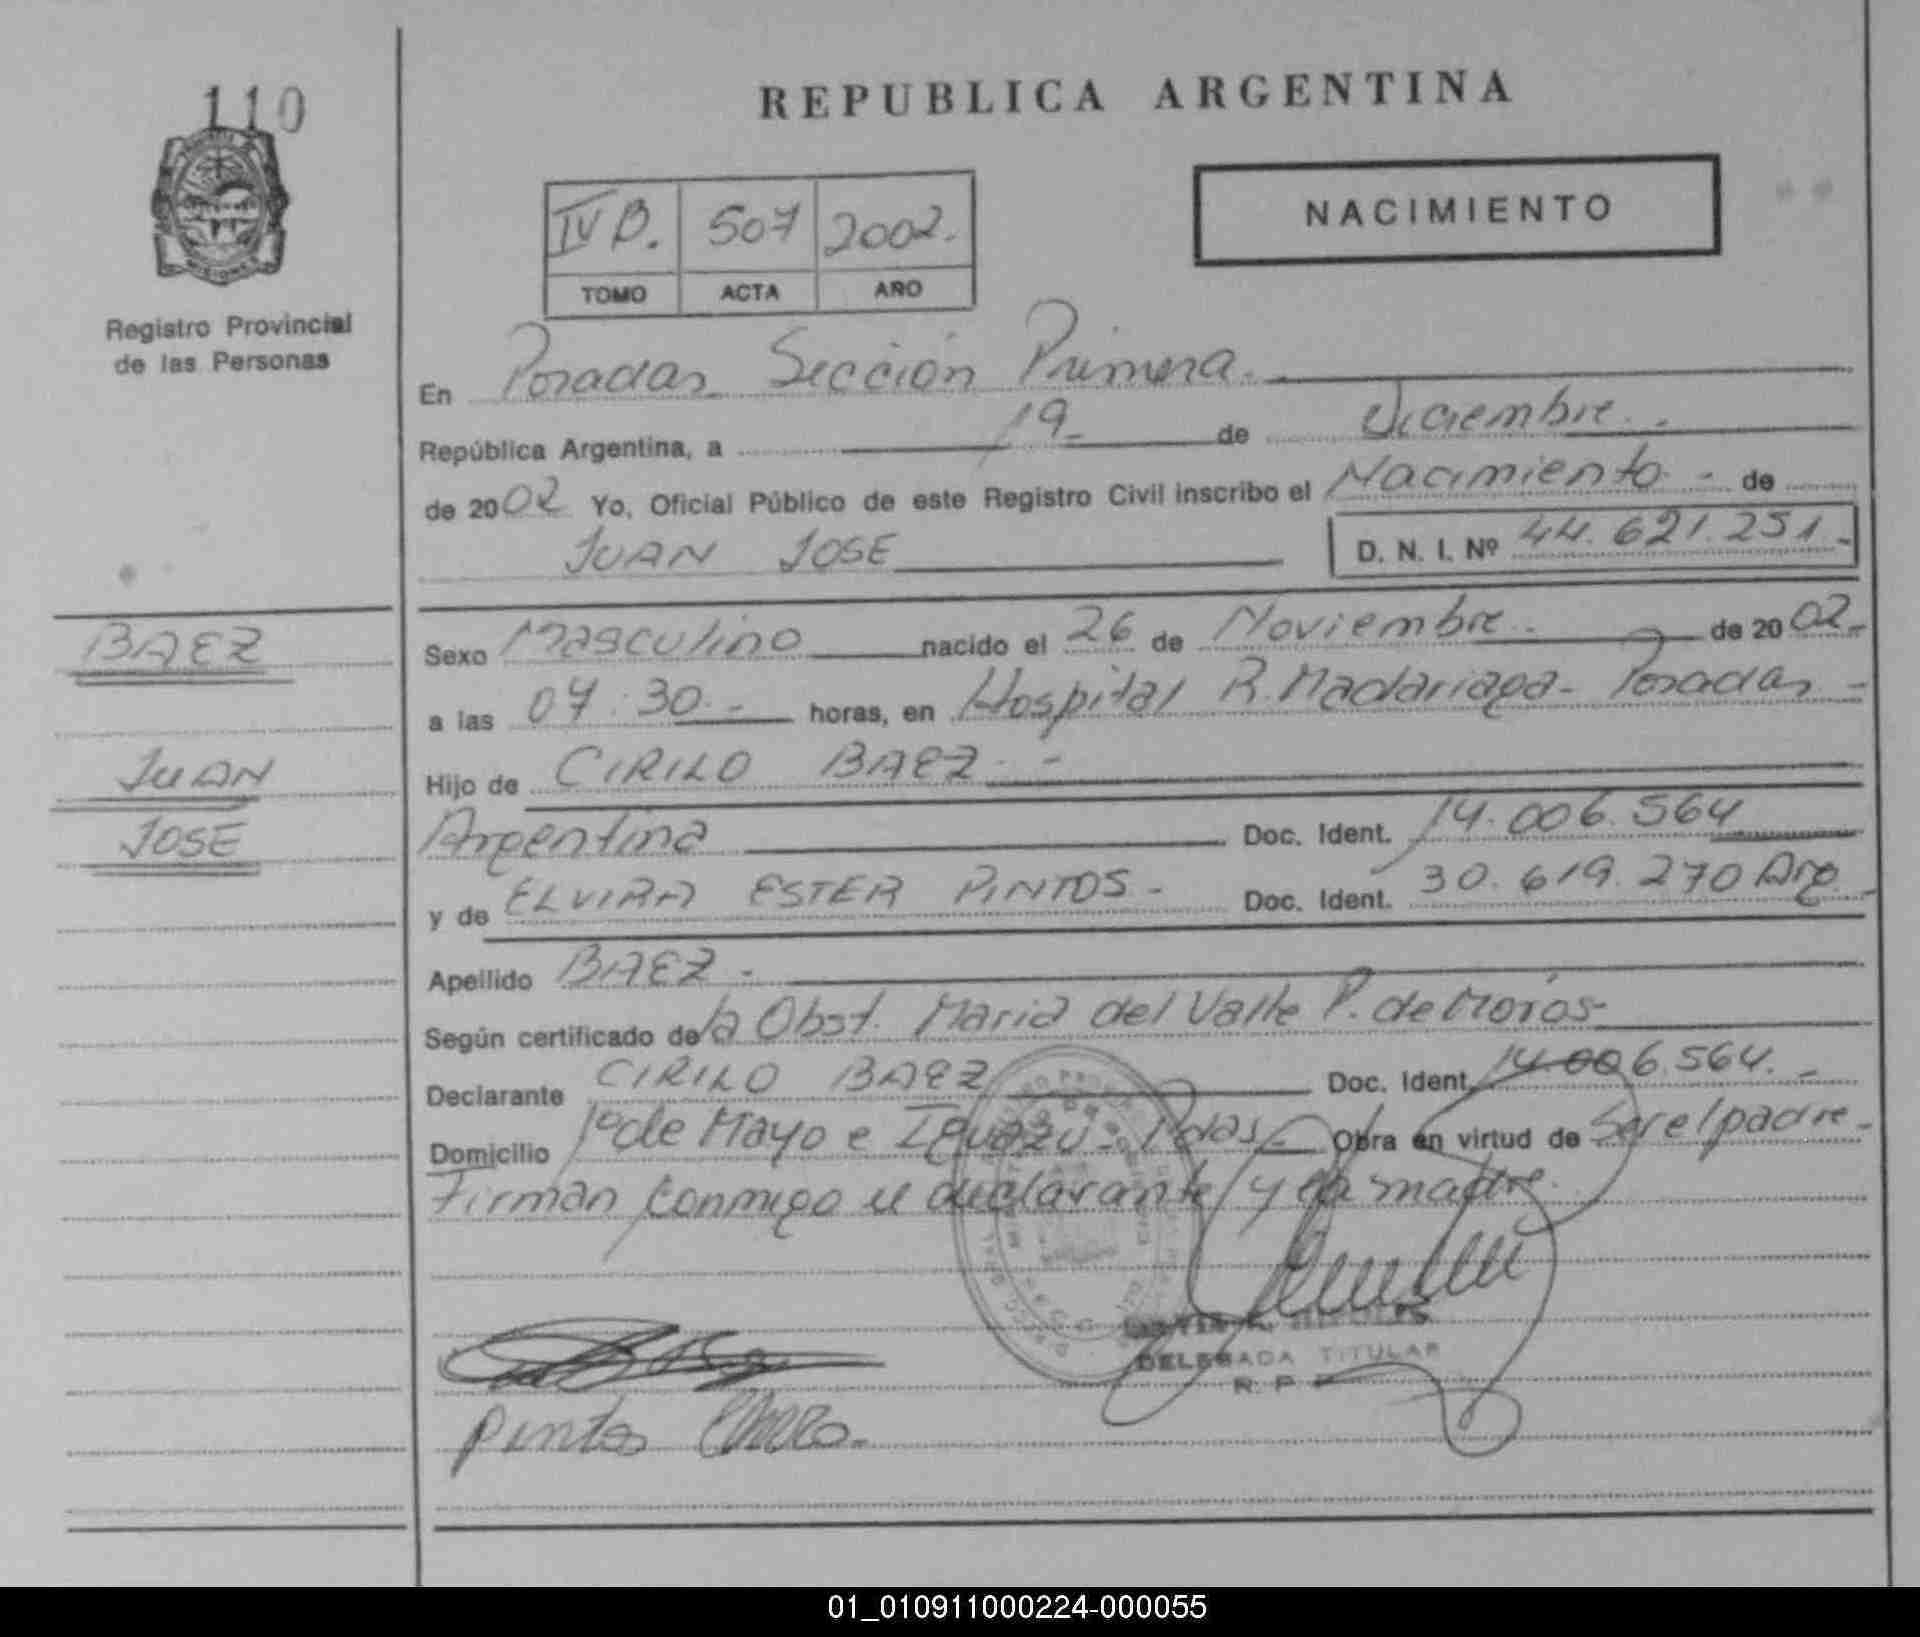 110
REPUBLICA ARGENTINA
MISIONES
Registro Provincial
de las Personas
IV B. 507 2002.
TOMO ACTA AÑO
NACIMIENTO
En Posadas Sección Primera.
República Argentina, a 19 de Diciembre.
de 2002 Yo, Oficial Público de este Registro Civil inscribo el Nacimiento - de
JUAN JOSE D. N. I. Nº 44.621.251.-
BAEZ
JUAN
JOSE
Sexo Masculino nacido el 26 de Noviembre. de 2002.-
a las 07.30.- horas, en Hospital R. Madariaga - Posadas -
Hijo de CIRILO BAEZ.-
Argentina Doc. Ident. 14.006.564
y de ELVIRA ESTER PINTOS.- Doc. Ident. 30.619.270 Arg.-
Apellido BAEZ.-
Según certificado de la Obst. Maria del Valle P. de Moros-
Declarante CIRILO BAEZ Doc. Ident. 14.006.564.-
Domicilio 1º de Mayo e Iguazú - Pdas.- Obra en virtud de Ser el padre.-
Firman conmigo el declarante y la madre.
DELEGADA TITULAR
R. P
Pintos
01_010911000224-000055